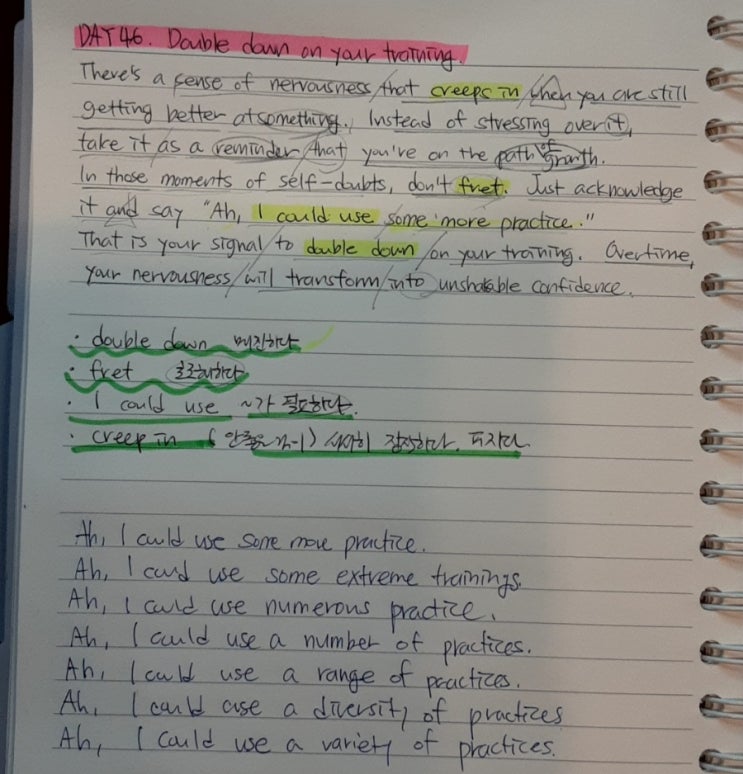 DAY 46. Double down on your training.
There's a sense of nervousness that creeps in when you are still
getting better at something. Instead of stressing over it,
take it as a reminder that you're on the path of growth.
In those moments of self-doubts, don't fret. Just acknowledge
it and say "Ah, I could use some more practice."
That is your signal to double down on your training. Overtime,
your nervousness will transform into unshakable confidence.
· double down 매진하다
· fret 초조해하다
· I could use ~가 필요하다.
· creep in ( 안좋은 것이) 서서히 잠식하다. 퍼지다.
Ah, I could use some more practice.
Ah, I could use some extreme trainings.
Ah, I could use numerous practice.
Ah, I could use a number of practices.
Ah, I could use a range of practices.
Ah, I could use a diversity of practices
Ah, I could use a variety of practices.